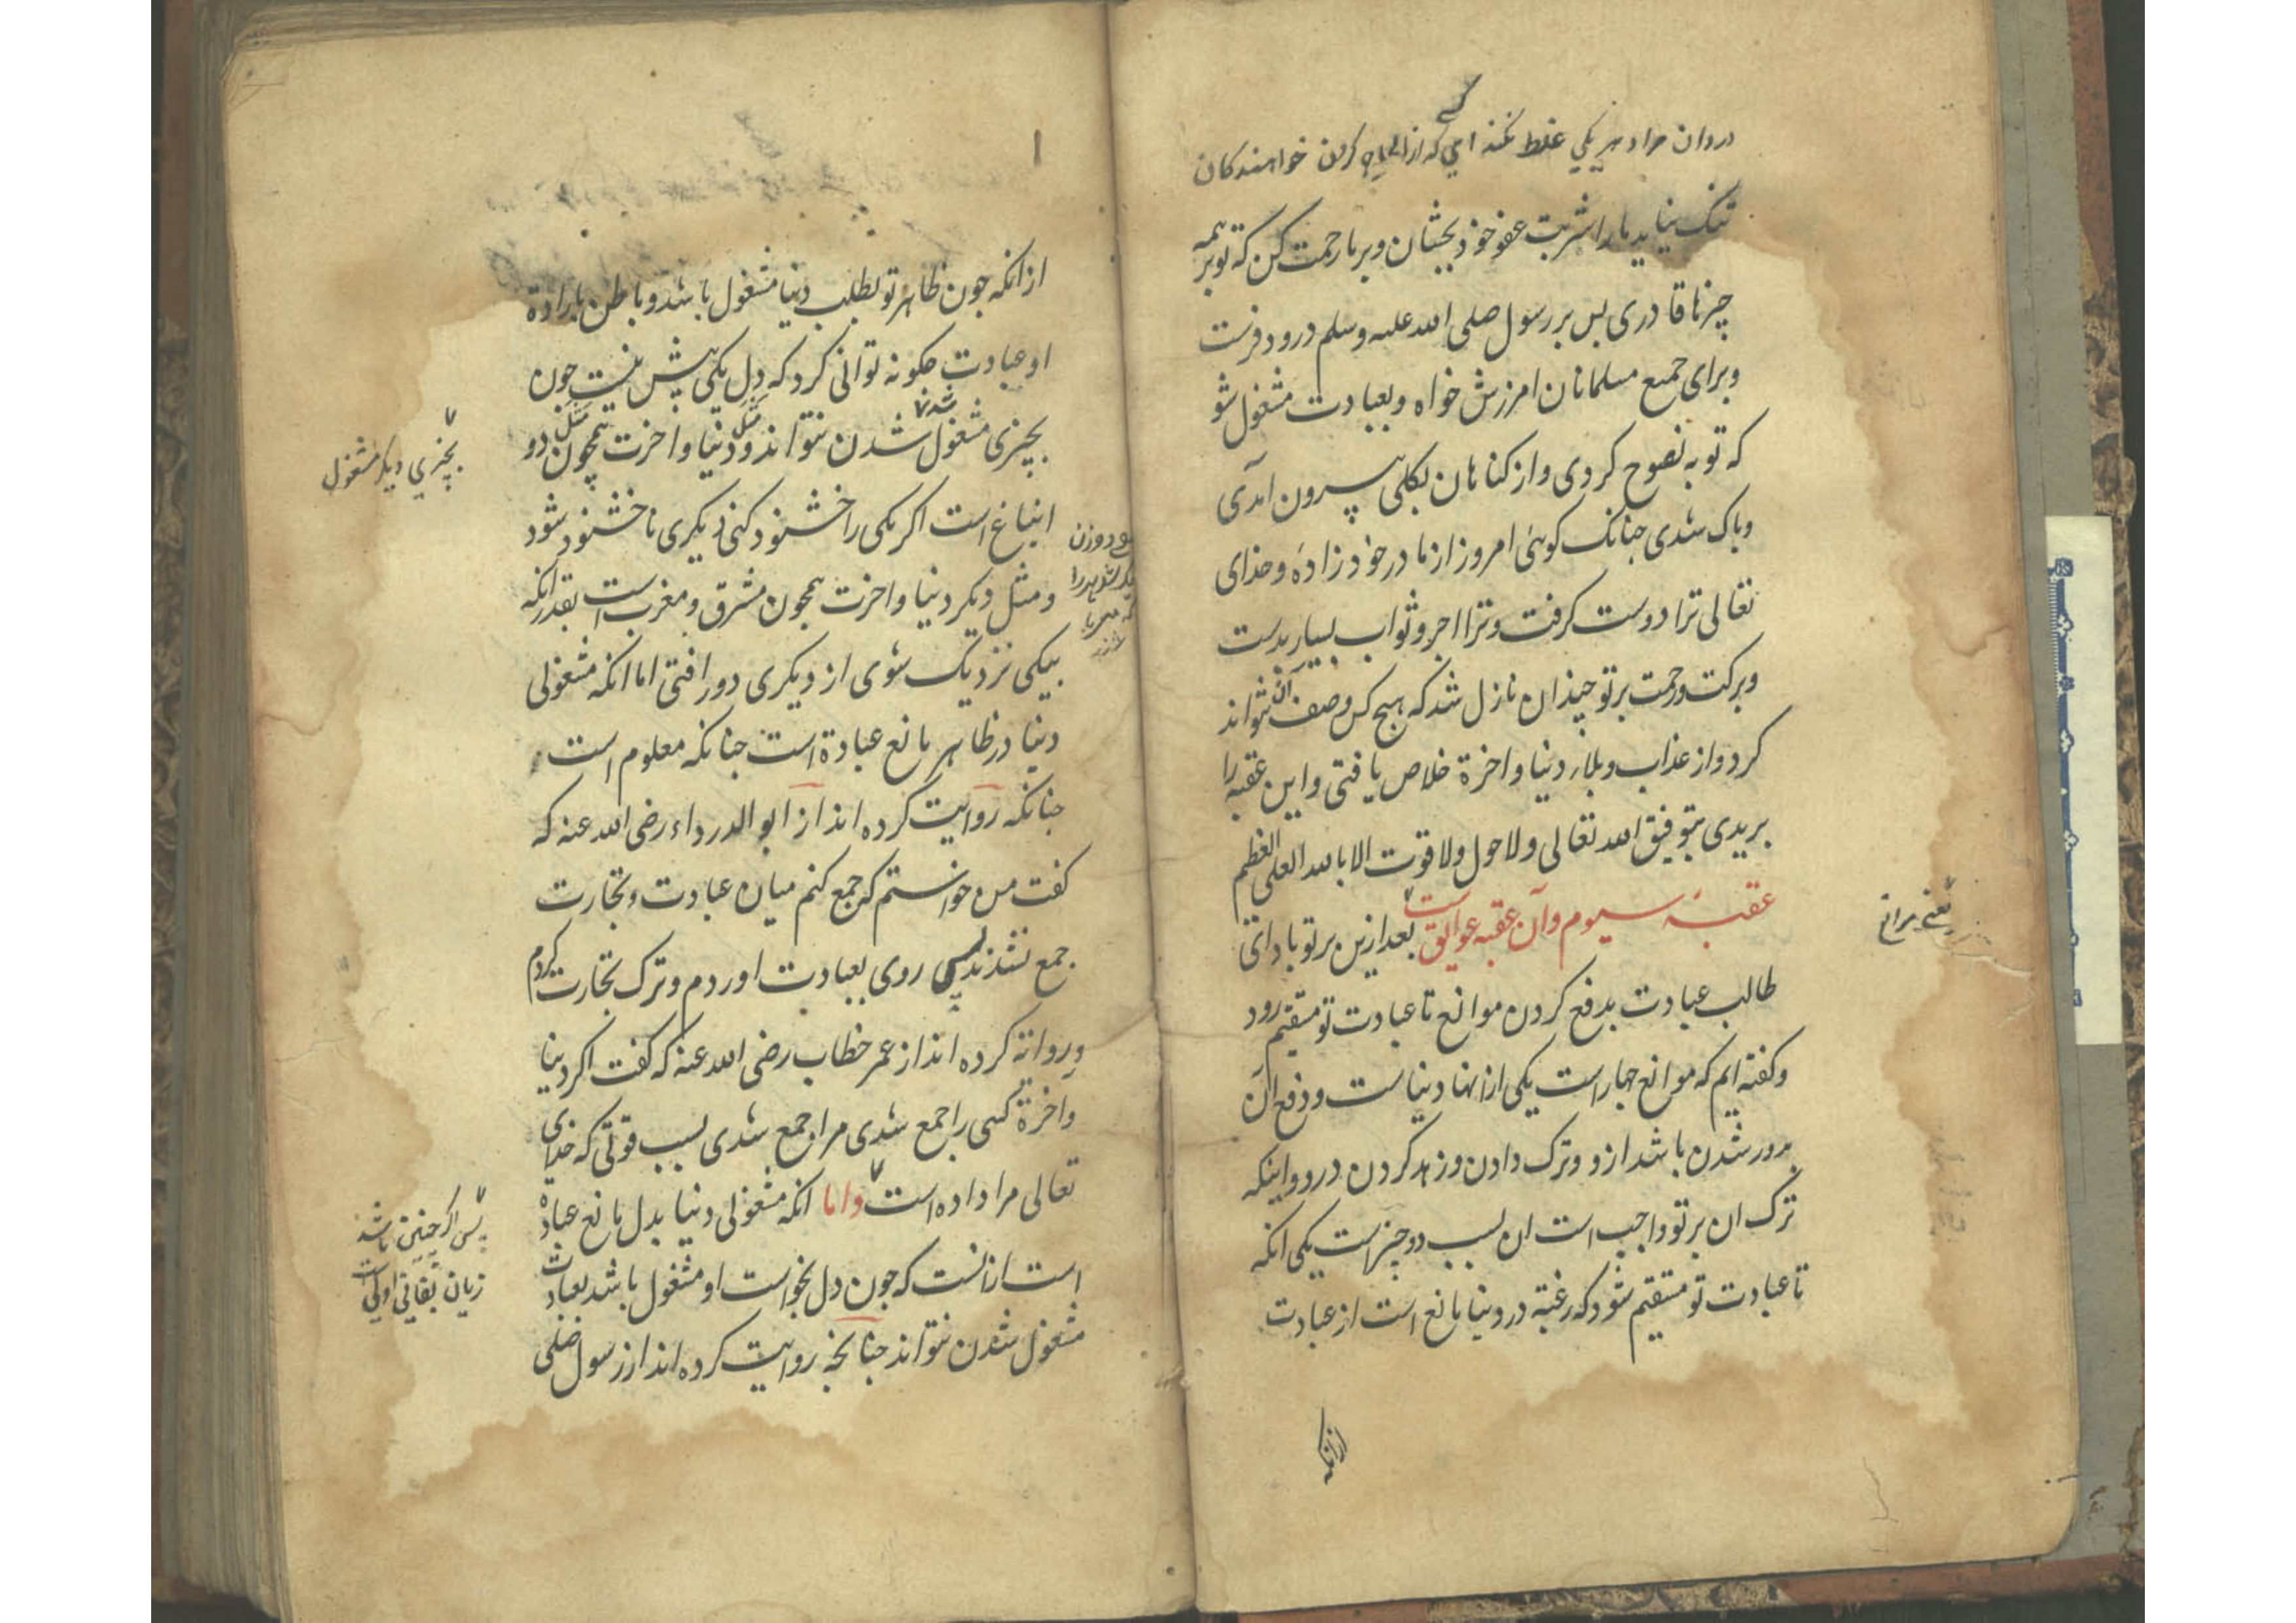 در دان مراد هر یکی غلط نکند ای که از الحاح کردن خواهندکان
تنک نیاید ما را شربت عفو خود بچشان و بر ما رحمت کن که تو بر همه
چیزها قادری بس بر رسول صلی الله علیه وسلم درود فرست
و برای جمیع مسلمانان امرزش خواه و بعبادت مشغول شو
که توبه نصوح کردی و از کناهان بکلی بیرون آمدی
وباک شدی جنانک کوئی امروز از مادر خود زادهٔ وخدای
تعالی ترا دوست کرفت و ترا اجر و ثواب بسیار بدست
وبرکت ورحمت بر تو چندان نازل شد که هیج کس وصف آن نتواند
کرد و از عذاب و بلاء دنیا و اخرة خلاص یافتی و این عقبه را
بریدی بتوفیق الله تعالی ولا حول ولا قوت الا بالله العلی العظیم
عقبهٔ سیوم و آن عقبه عوایق است بعد ازین بر تو باد ای
یعنی موانع
طالب عبادت بدفع کردن موانع تا عبادت تو مستقیم رود
وکفته ایم که موانع جهار است یکی از انها دنیاست و دفع آن
بدور شدن باشد ازو و ترک دادن و زهد کردن درو و اینکه
ترک ان بر تو واجب است ان بسبب دو چیز است یکی انکه
تا عبادت تو مستقیم شود که رغبة در دنیا مانع است از عبادت
ازانکه
ازانکه جون ظاهر تو بطلب دنیا مشغول باشد و باطن بارادهٔ
او عبادت جکونه توانی کرد که دل یکی بیش نیست جون
بچیزی مشغول شد بچیزی دیکر مشغول شدن نتواند و مثل دنیا و اخرت همچون مثل دو
انباغ است اکر یکی را خشنود کنی دیکری ناخشنود شود
و مثل دیکر دنیا و اخرت همجون مشرق و مغرب است بقدر انکه
بیکی نزدیک شوی از دیکری دور افتی اما انکه مشغولی
دنیا در ظاهر مانع عبادة است جنانکه معلوم است
جنانکه روایت کرده اند از ابو الدرداء رضی الله عنه که
کفت من خواستم که جمع کنم میان عبادت و تجارت
جمع نشدند پس روی بعبادت اوردم و ترک تجارت کردم
وروایة کرده اند از عمر خطاب رضی الله عنه که کفت اکر دنیا
و اخرة کسی را جمع شدی مرا جمع شدی بسبب قوتی که خدای
تعالی مرا داده است و اما انکه مشغولی دنیا بدل مانع عبادة
پس اکر چنین باشد
زیان بفانی اولیست
است از انست که جون دل بخواست او مشغول باشد بعبادت
مشغول شدن نتواند جنانجه روایت کرده اند از رسول صلی